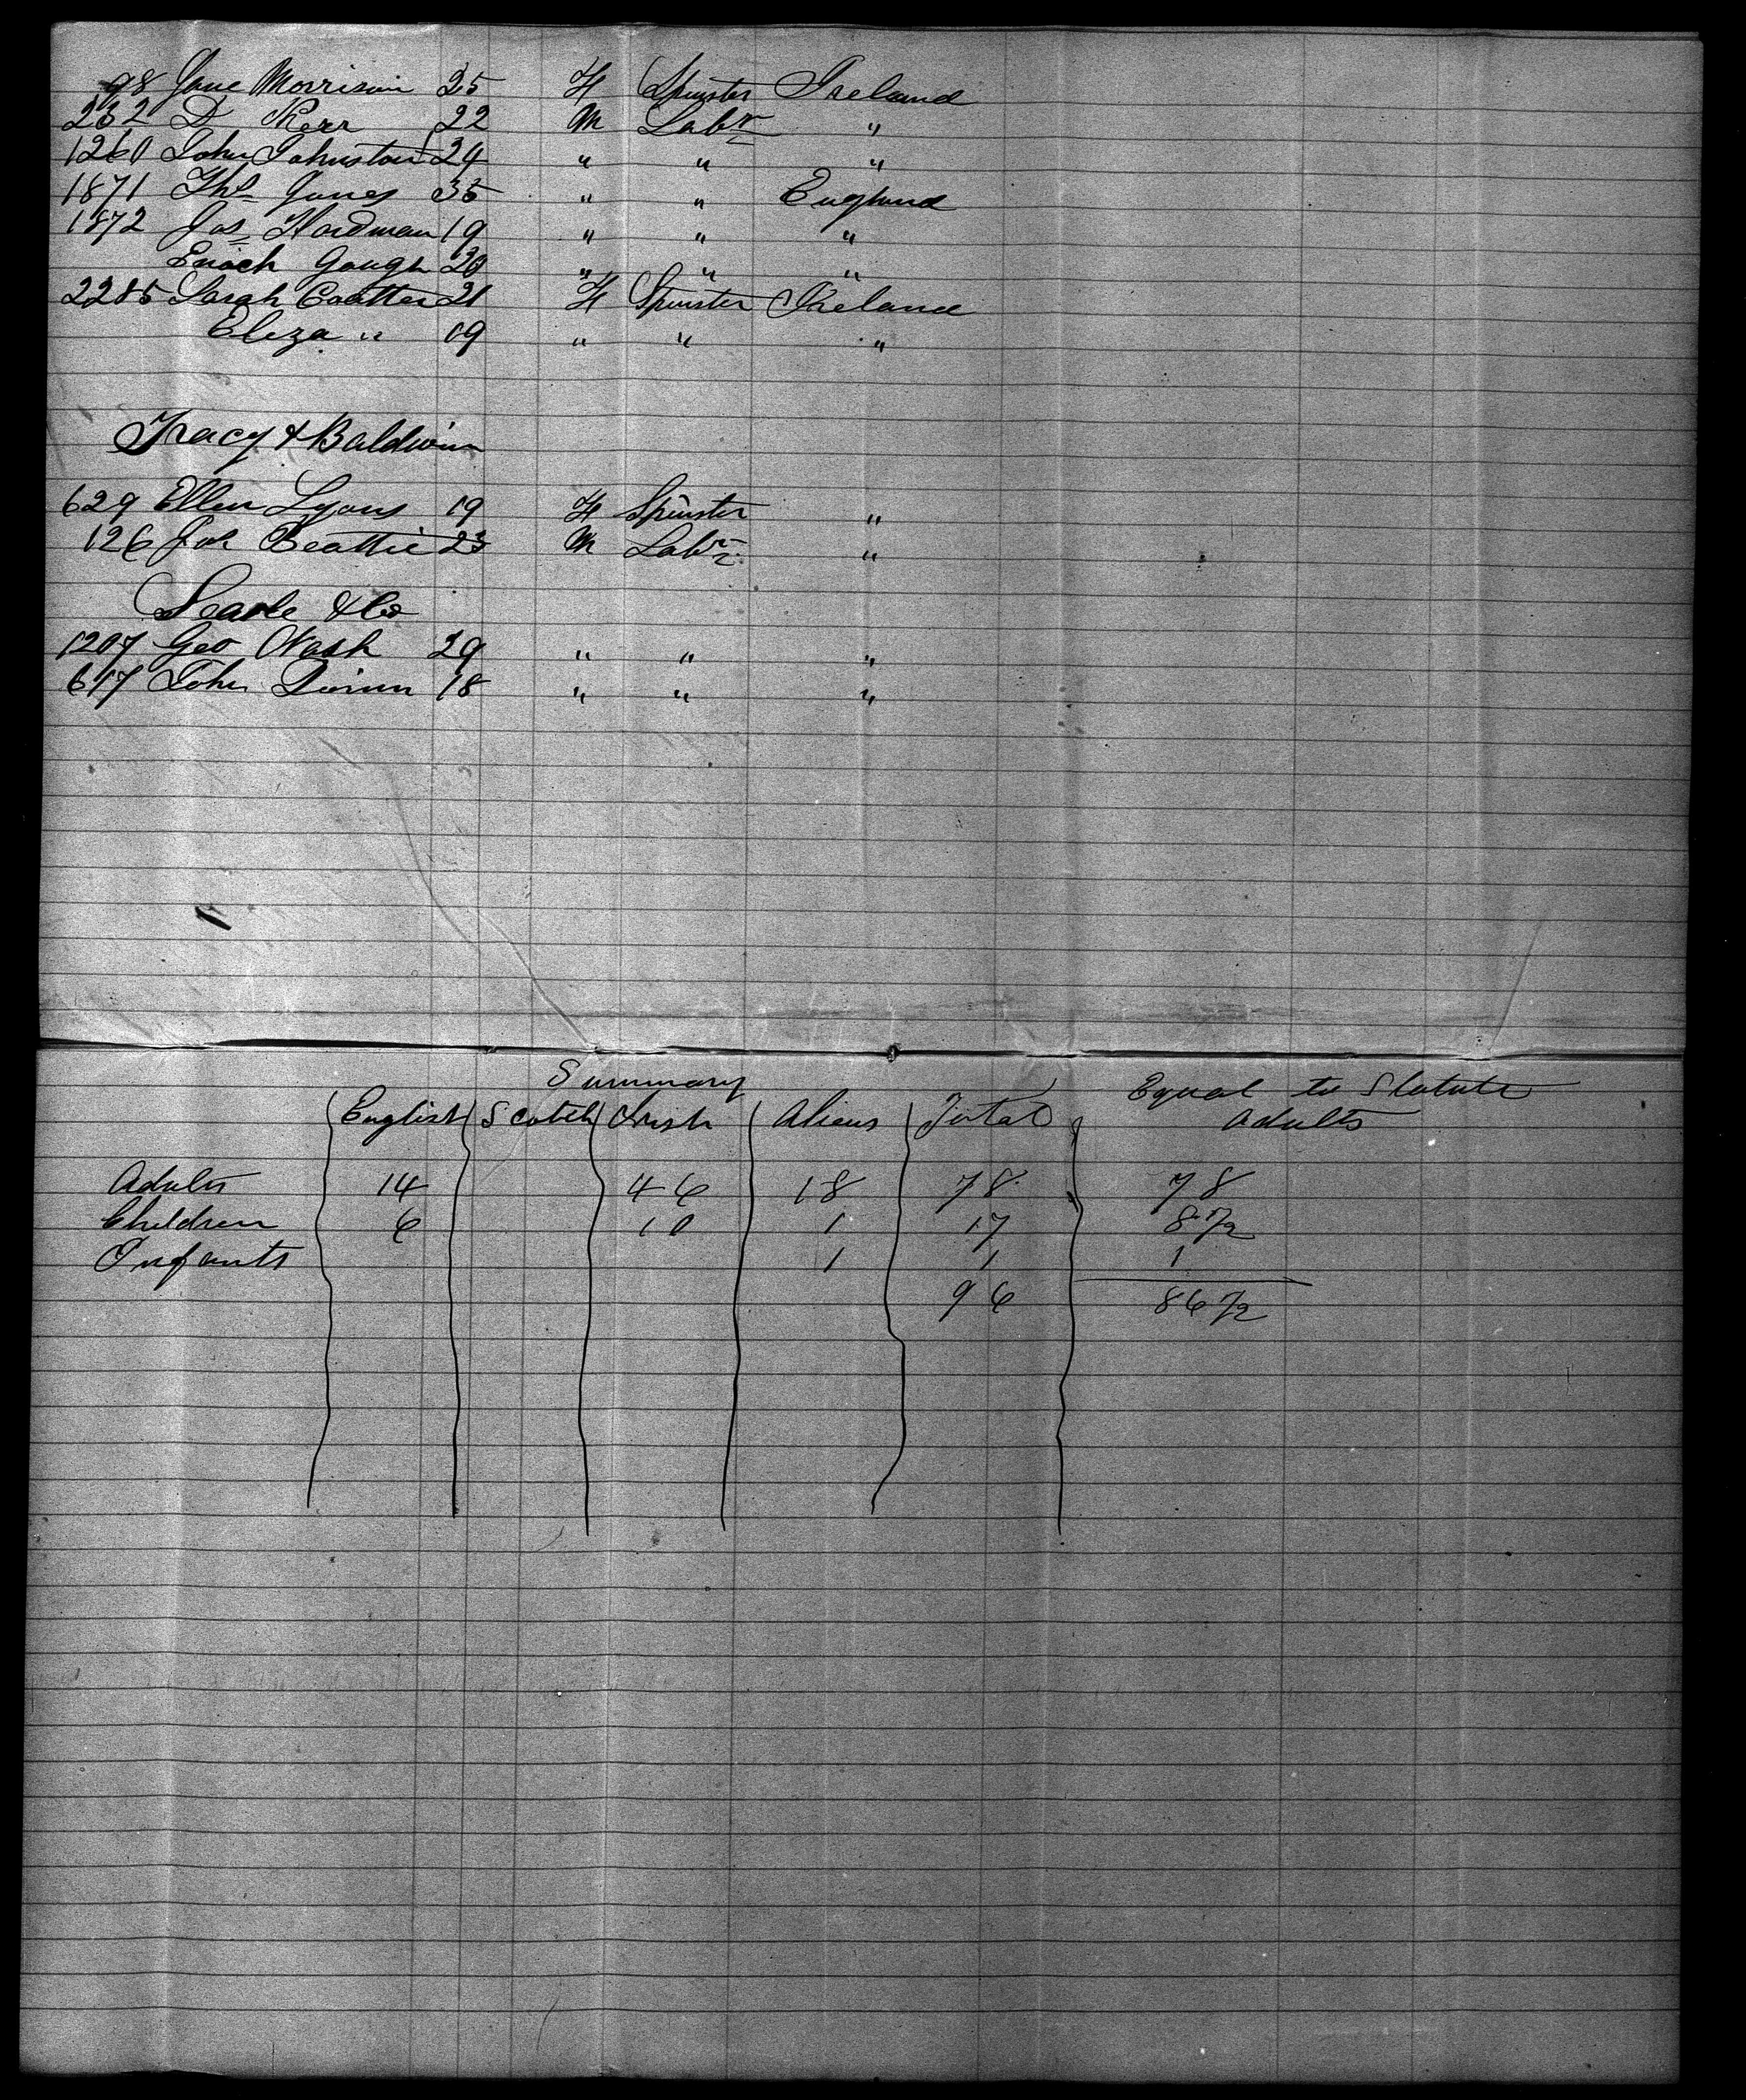 98 Jane Morrison 25 F Spinster Ireland
232 D Kerr 22 M Labr "
1260 John Johnston 24 " " "
1871 Thos Jones 35 " " England
1872 Jas Hardman 19 " " "
Enoch Gough 20 " " "
2285 Sarah 21 F Spinster Ireland
Eliza " 19 " " "
Tracy & Baldwin
629 Ellen Lyons 19 F Spinster "
126 Beattie 23 M Labr "
& Co
1207 Geo Nash 29 " " "
617 John 18 " " "
Summary
English Scotch Irish Aliens Total Equal to Statute Adults
Adults 14 46 18 78 78
Children 6 10 1 17 8 1/2
Infants 1 1 1
96 86 1/2